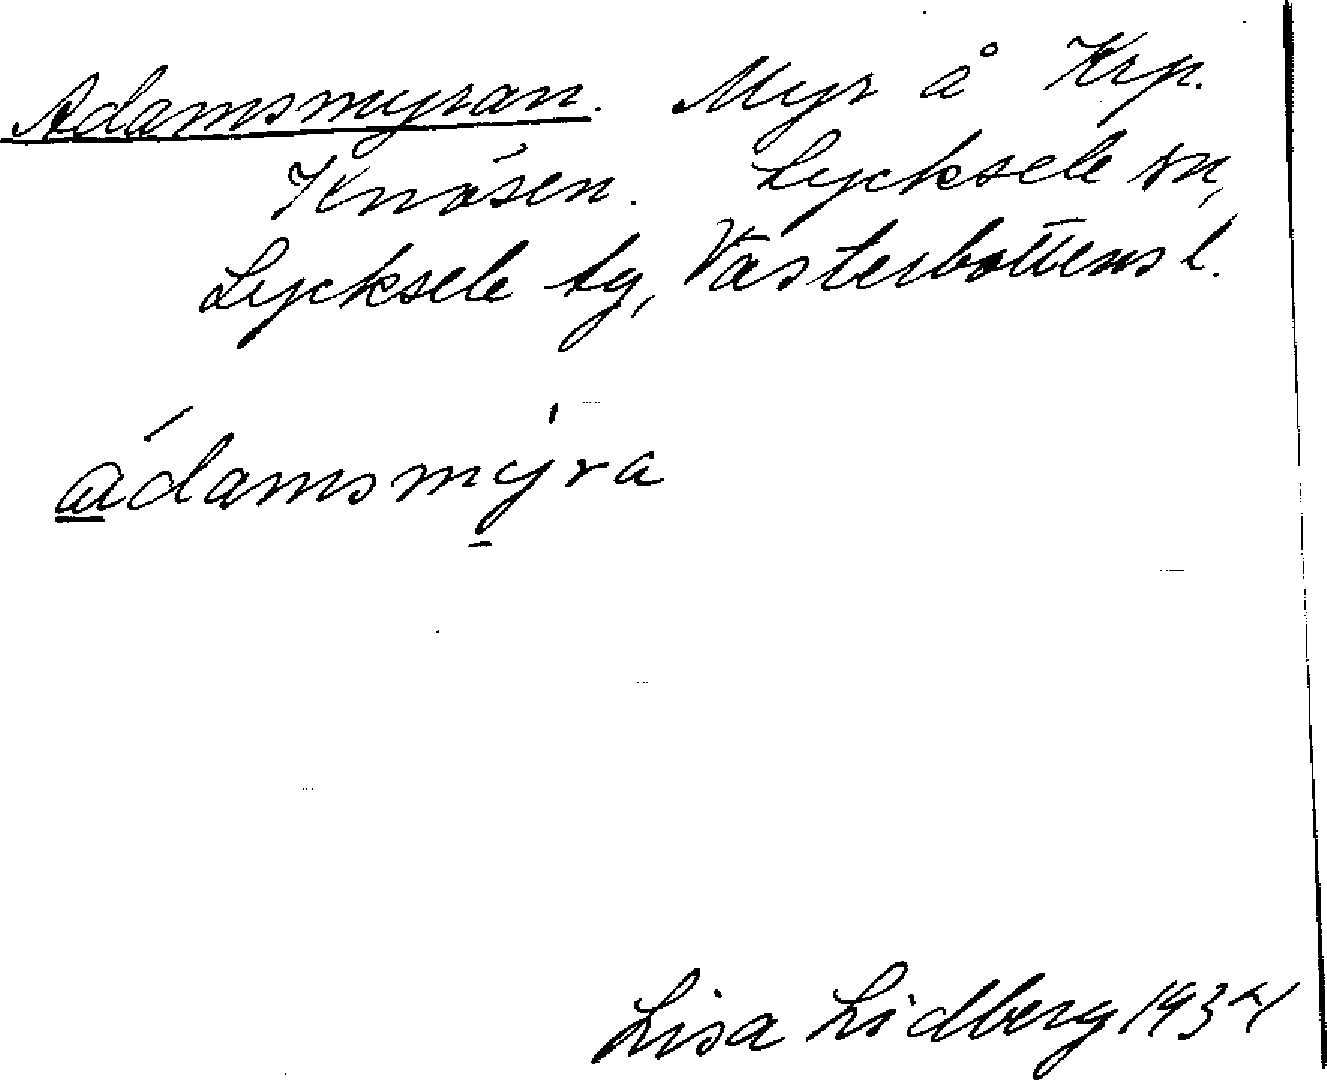 Adamsmyran. Myr å Krp.
Knösen. Lycksele sn,
Lycksele tg, Västerbottens l.
ádamsmy̱ra
Lisa Lidberg 1934